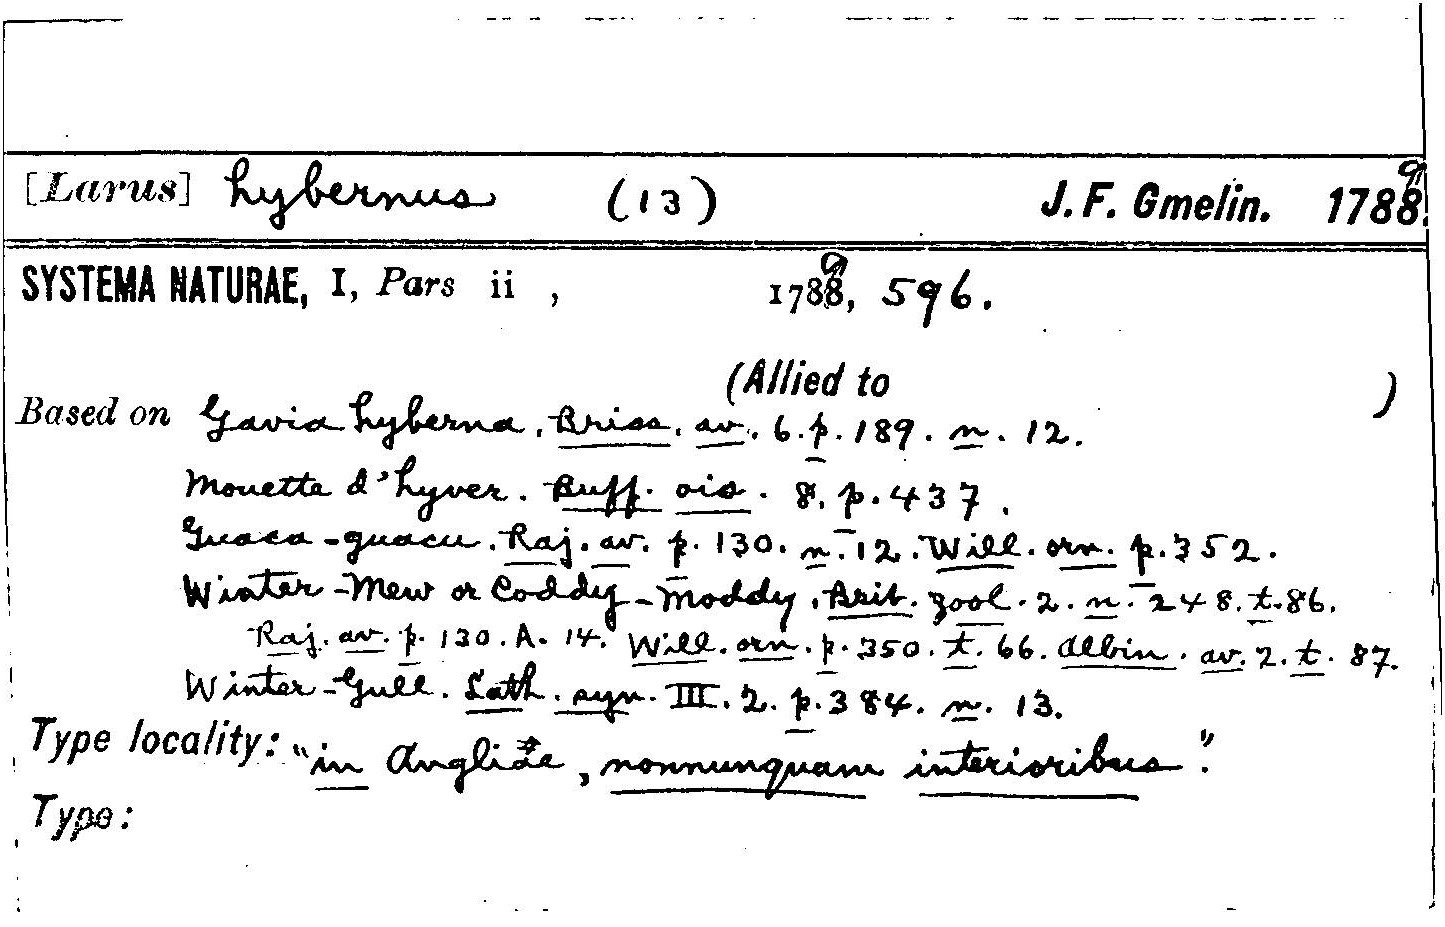 [Larus] hybernus (13) J. F. Gmelin. 1789.
SYSTEMA NATURAE, I, Pars ii , 1789, 596.
(Allied to )
Based on Gavia hyberna. Briss. av. 6. p. 189. n. 12.
Mouette d'hyver. Buff. ois. 8. p. 437.
Guaca-guacu. Raj. av. p. 130. n. 12. Will. orn. p. 352.
Winter-Mew or Coddy-Moddy. Brit. zool. 2. n. 248. t. 86.
Raj. av. p. 130. A. 14. Will. orn. p. 350. t. 66. Albin. av. 2. t. 87.
Winter-Gull. Lath. syn. III. 2. p. 384. n. 13.
Type locality: "in Angliae, nonnunquam interioribus".
Type: